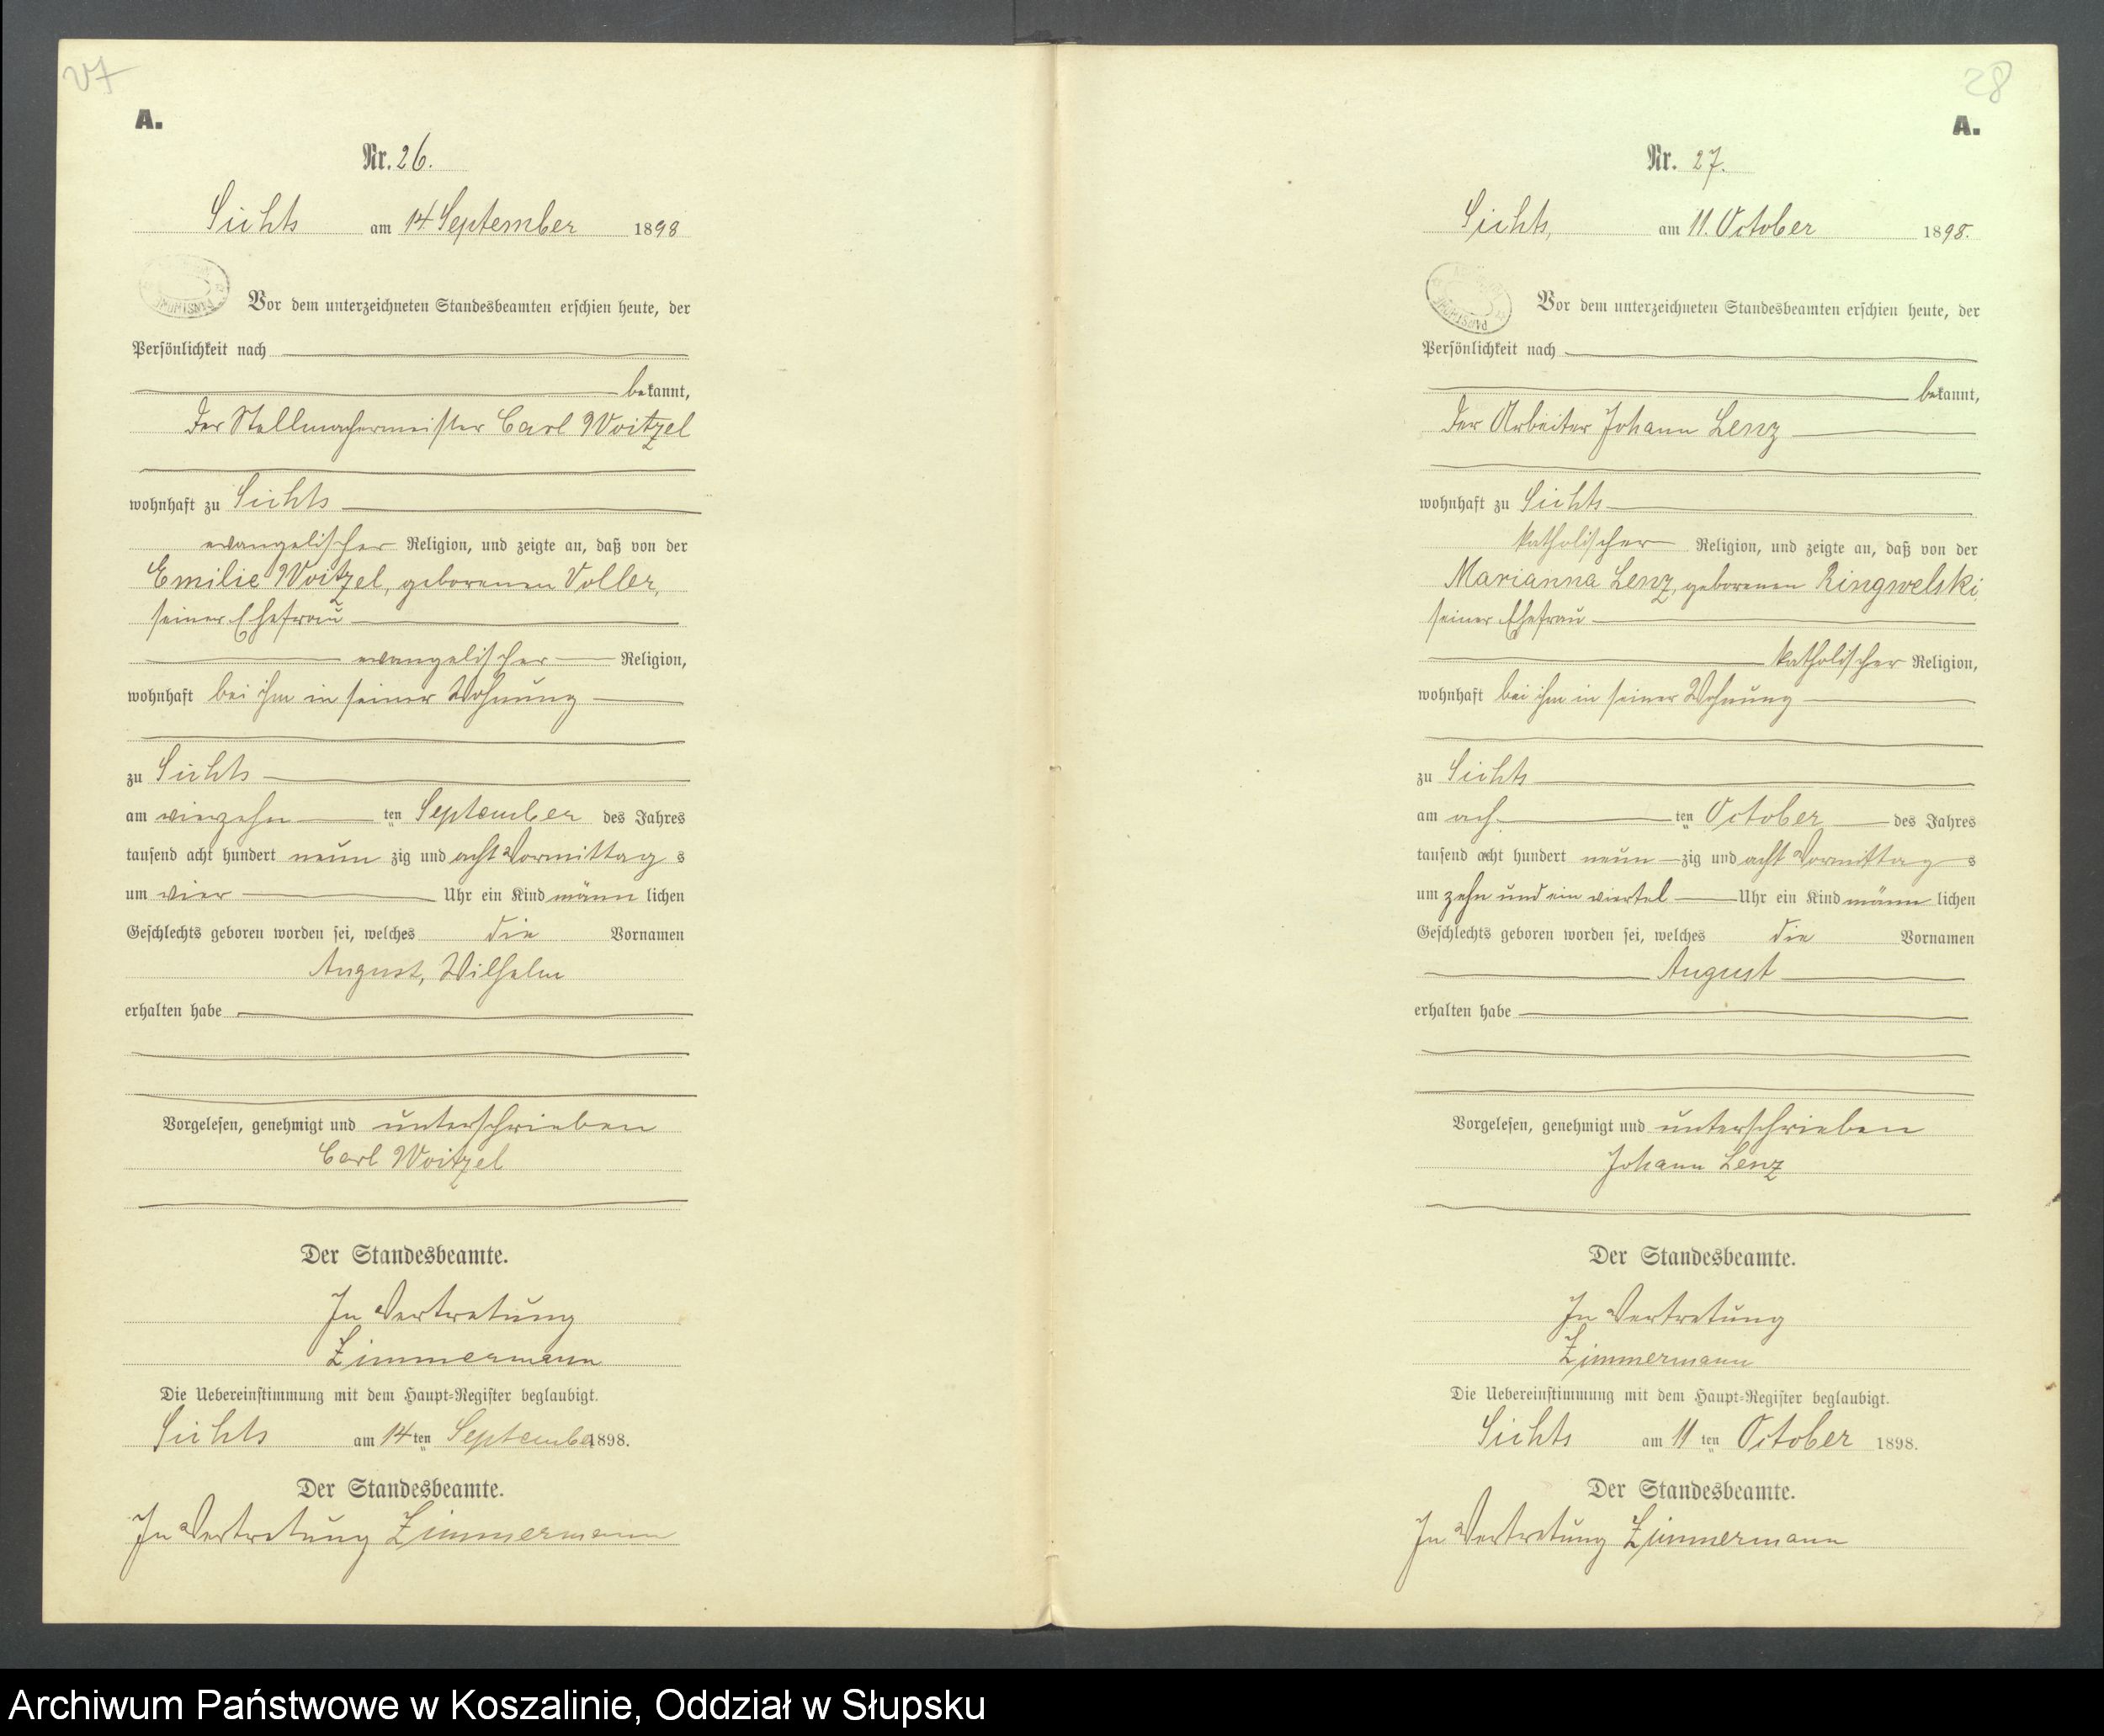 27
A.
Nr. 26.
Sichts am 14 September 1898
Vor dem unterzeichneten Standesbeamten erschien heute, der
Persönlichkeit nach
bekannt,
der Stellmachermeister Carl Woitzel
wohnhaft zu Sichts
evangelischer Religion, und zeigte an, daß von der
Emilie Woitzel, geborenen Voller,
seiner Ehefrau
evangelischer Religion,
wohnhaft bei ihm in seiner Wohnung
zu Sichts
am vierzehn ten September des Jahres
tausend acht hundert neun zig und acht Vormittag s
um vier Uhr ein Kind männ lichen
Geschlechts geboren worden sei, welches die Vornamen
August, Wilhelm
erhalten habe
Vorgelesen, genehmigt und unterschrieben
Carl Woitzel
Der Standesbeamte.
In Vertretung
Zimmermann
Die Uebereinstimmung mit dem Haupt-Register beglaubigt.
Sichts am 14 ten September 1898.
Der Standesbeamte.
In Vertretung Zimmermann
28
A.
Nr. 27.
Sichts, am 11. October 1898.
Vor dem unterzeichneten Standesbeamten erschien heute, der
Persönlichkeit nach
bekannt,
der Arbeiter Johann Lenz
wohnhaft zu Sichts
katholischer Religion, und zeigte an, daß von der
Marianna Lenz, geborenen Ringwelski,
seiner Ehefrau
katholischer Religion,
wohnhaft bei ihm in seiner Wohnung
zu Sichts
am ach ten October des Jahres
tausend acht hundert neun zig und acht Vormittag s
um zehn und ein viertel Uhr ein Kind männ lichen
Geschlechts geboren worden sei, welches die Vornamen
August
erhalten habe
Vorgelesen, genehmigt und unterschrieben
Johann Lenz
Der Standesbeamte.
In Vertretung
Zimmermann
Die Uebereinstimmung mit dem Haupt-Register beglaubigt.
Sichts am 11 ten October 1898.
Der Standesbeamte.
In Vertretung Zimmermann
Archiwum Państwowe w Koszalinie, Oddział w Słupsku